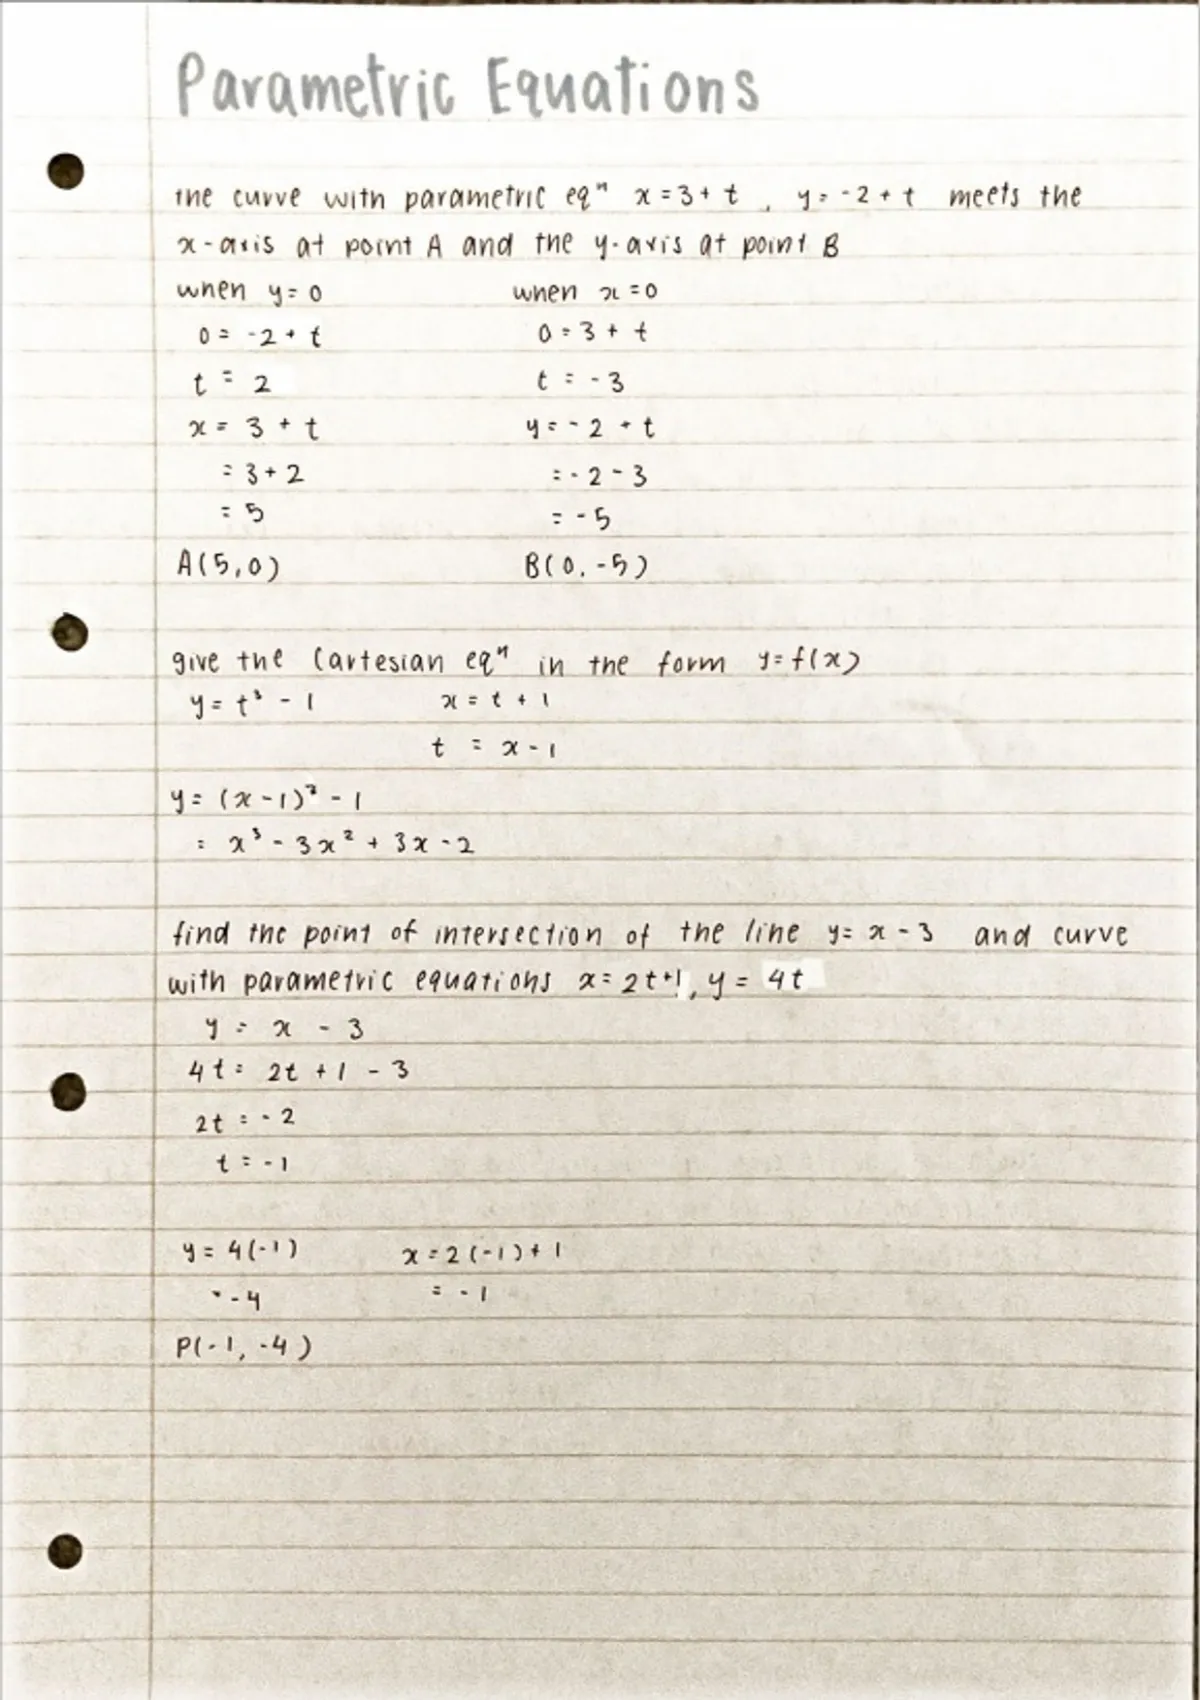 Parametric Equations
the curve with parametric eqⁿ x = 3 + t , y = -2 + t meets the
x-axis at point A and the y-axis at point B
when y = 0 when x = 0
0 = -2 + t 0 = 3 + t
t = 2 t = -3
x = 3 + t y = -2 + t
= 3 + 2 = -2 - 3
= 5 = -5
A(5,0) B(0,-5)
give the Cartesian eqⁿ in the form y = f(x)
y = t³ - 1 x = t + 1
t = x - 1
y = (x - 1)³ - 1
= x³ - 3x² + 3x - 2
find the point of intersection of the line y = x - 3 and curve
with parametric equations x = 2t+1, y = 4t
y = x - 3
4t = 2t + 1 - 3
2t = -2
t = -1
y = 4(-1) x = 2(-1) + 1
= -4 = -1
P(-1, -4)